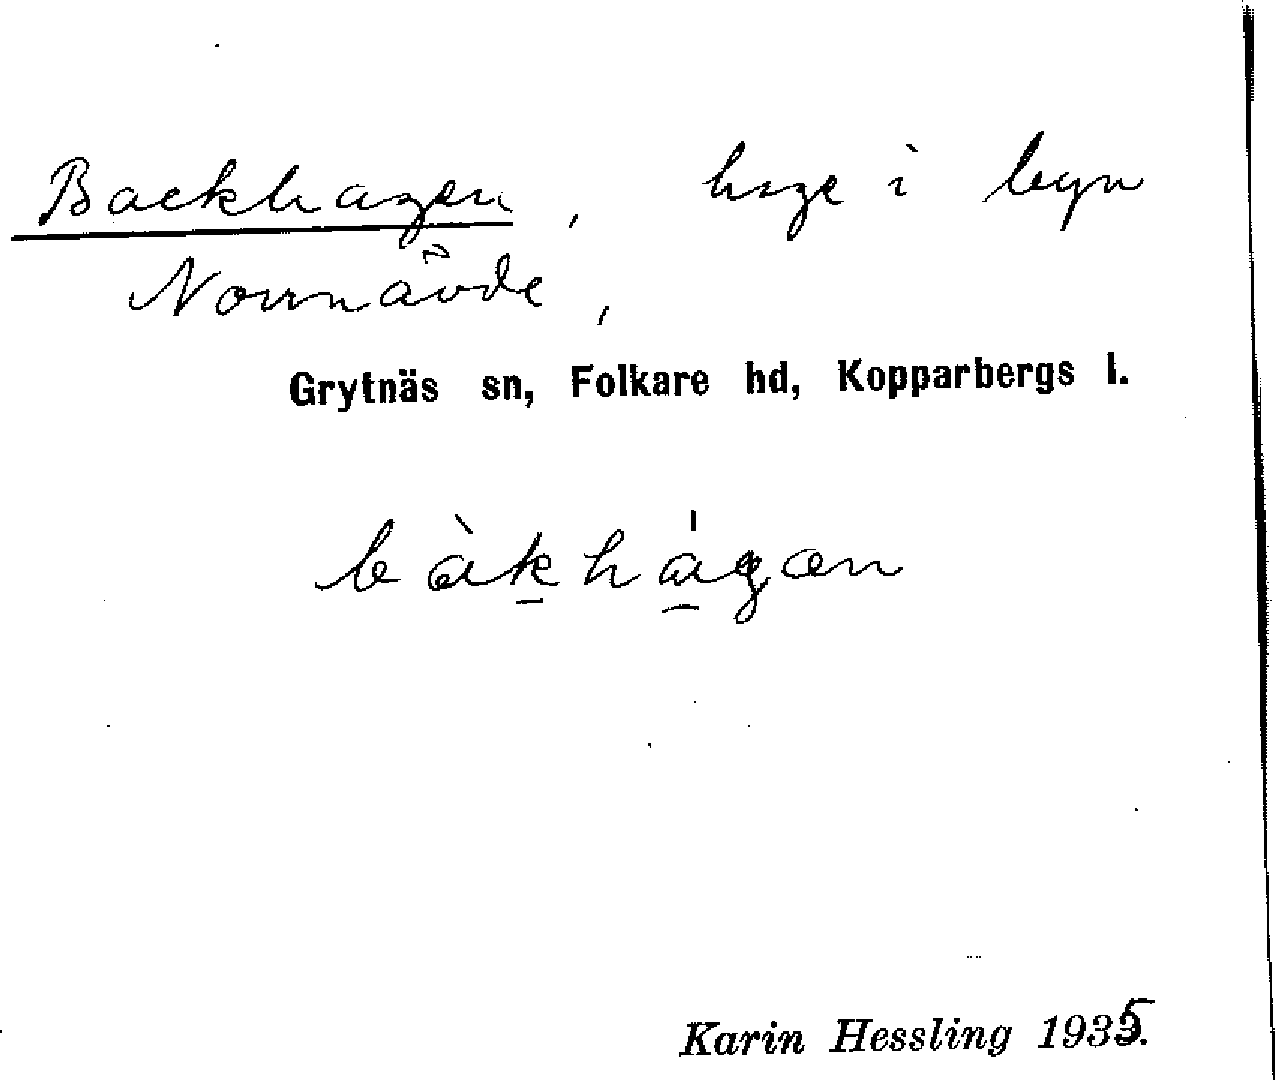 Backhagen, hage i byn
Norrnävde,
Grytnäs sn, Folkare hd, Kopparbergs l.
bàkhágan
Karin Hessling 1935.